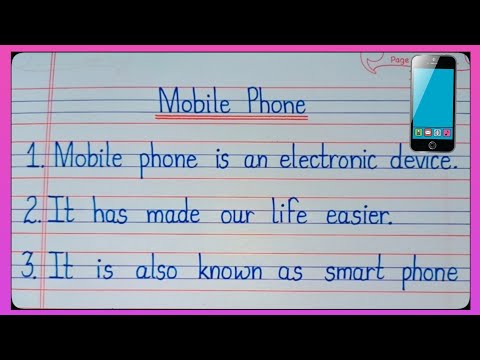 Page
Mobile Phone
1. Mobile phone is an electronic device.
2. It has made our life easier.
3. It is also known as smart phone